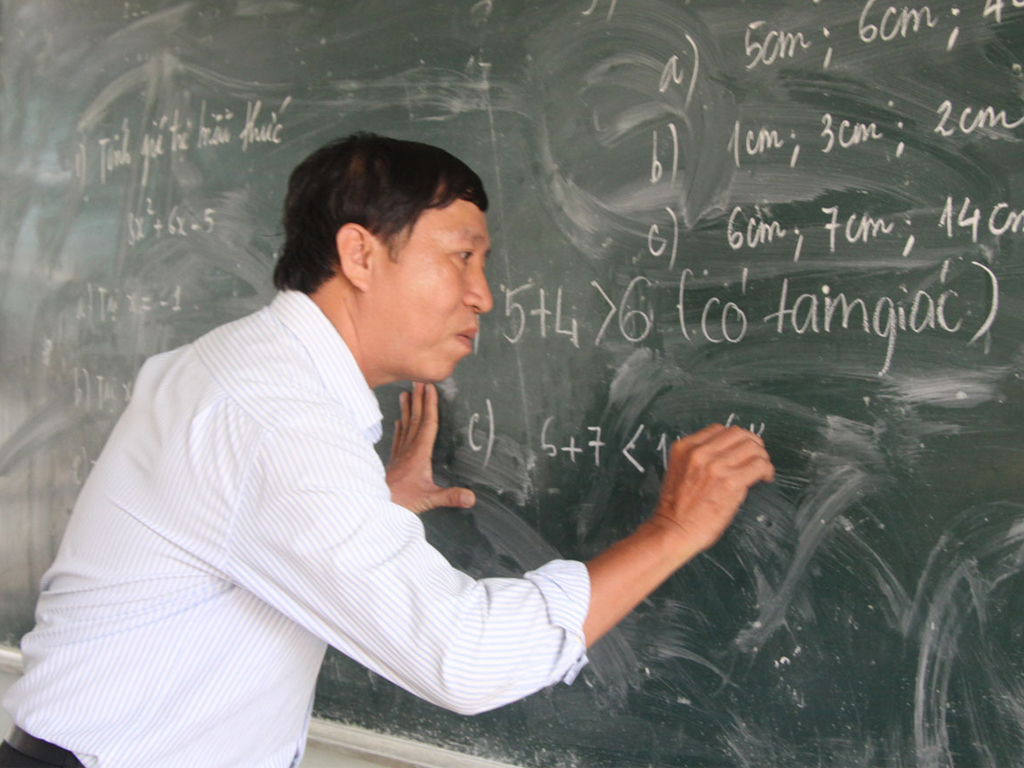 Tính giá trị biểu thức
x²+6x-5
a) Tại x=-1
b)
a) 5cm; 6cm; 4
b) 1cm; 3cm; 2cm
c) 6cm; 7cm; 14cm
5+4>6 (có tamgiác)
c) 6+7<1